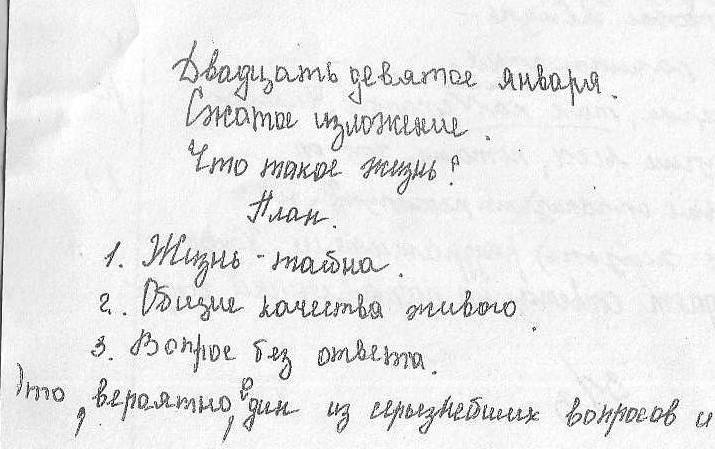 Двадцать девятое января.
Сжатое изложение.
Что такое жизнь?
План.
1. Жизнь - тайна.
2. Общие качества живого.
3. Вопрос без ответа.
Это, вероятно, один из серьезнейших вопросов и